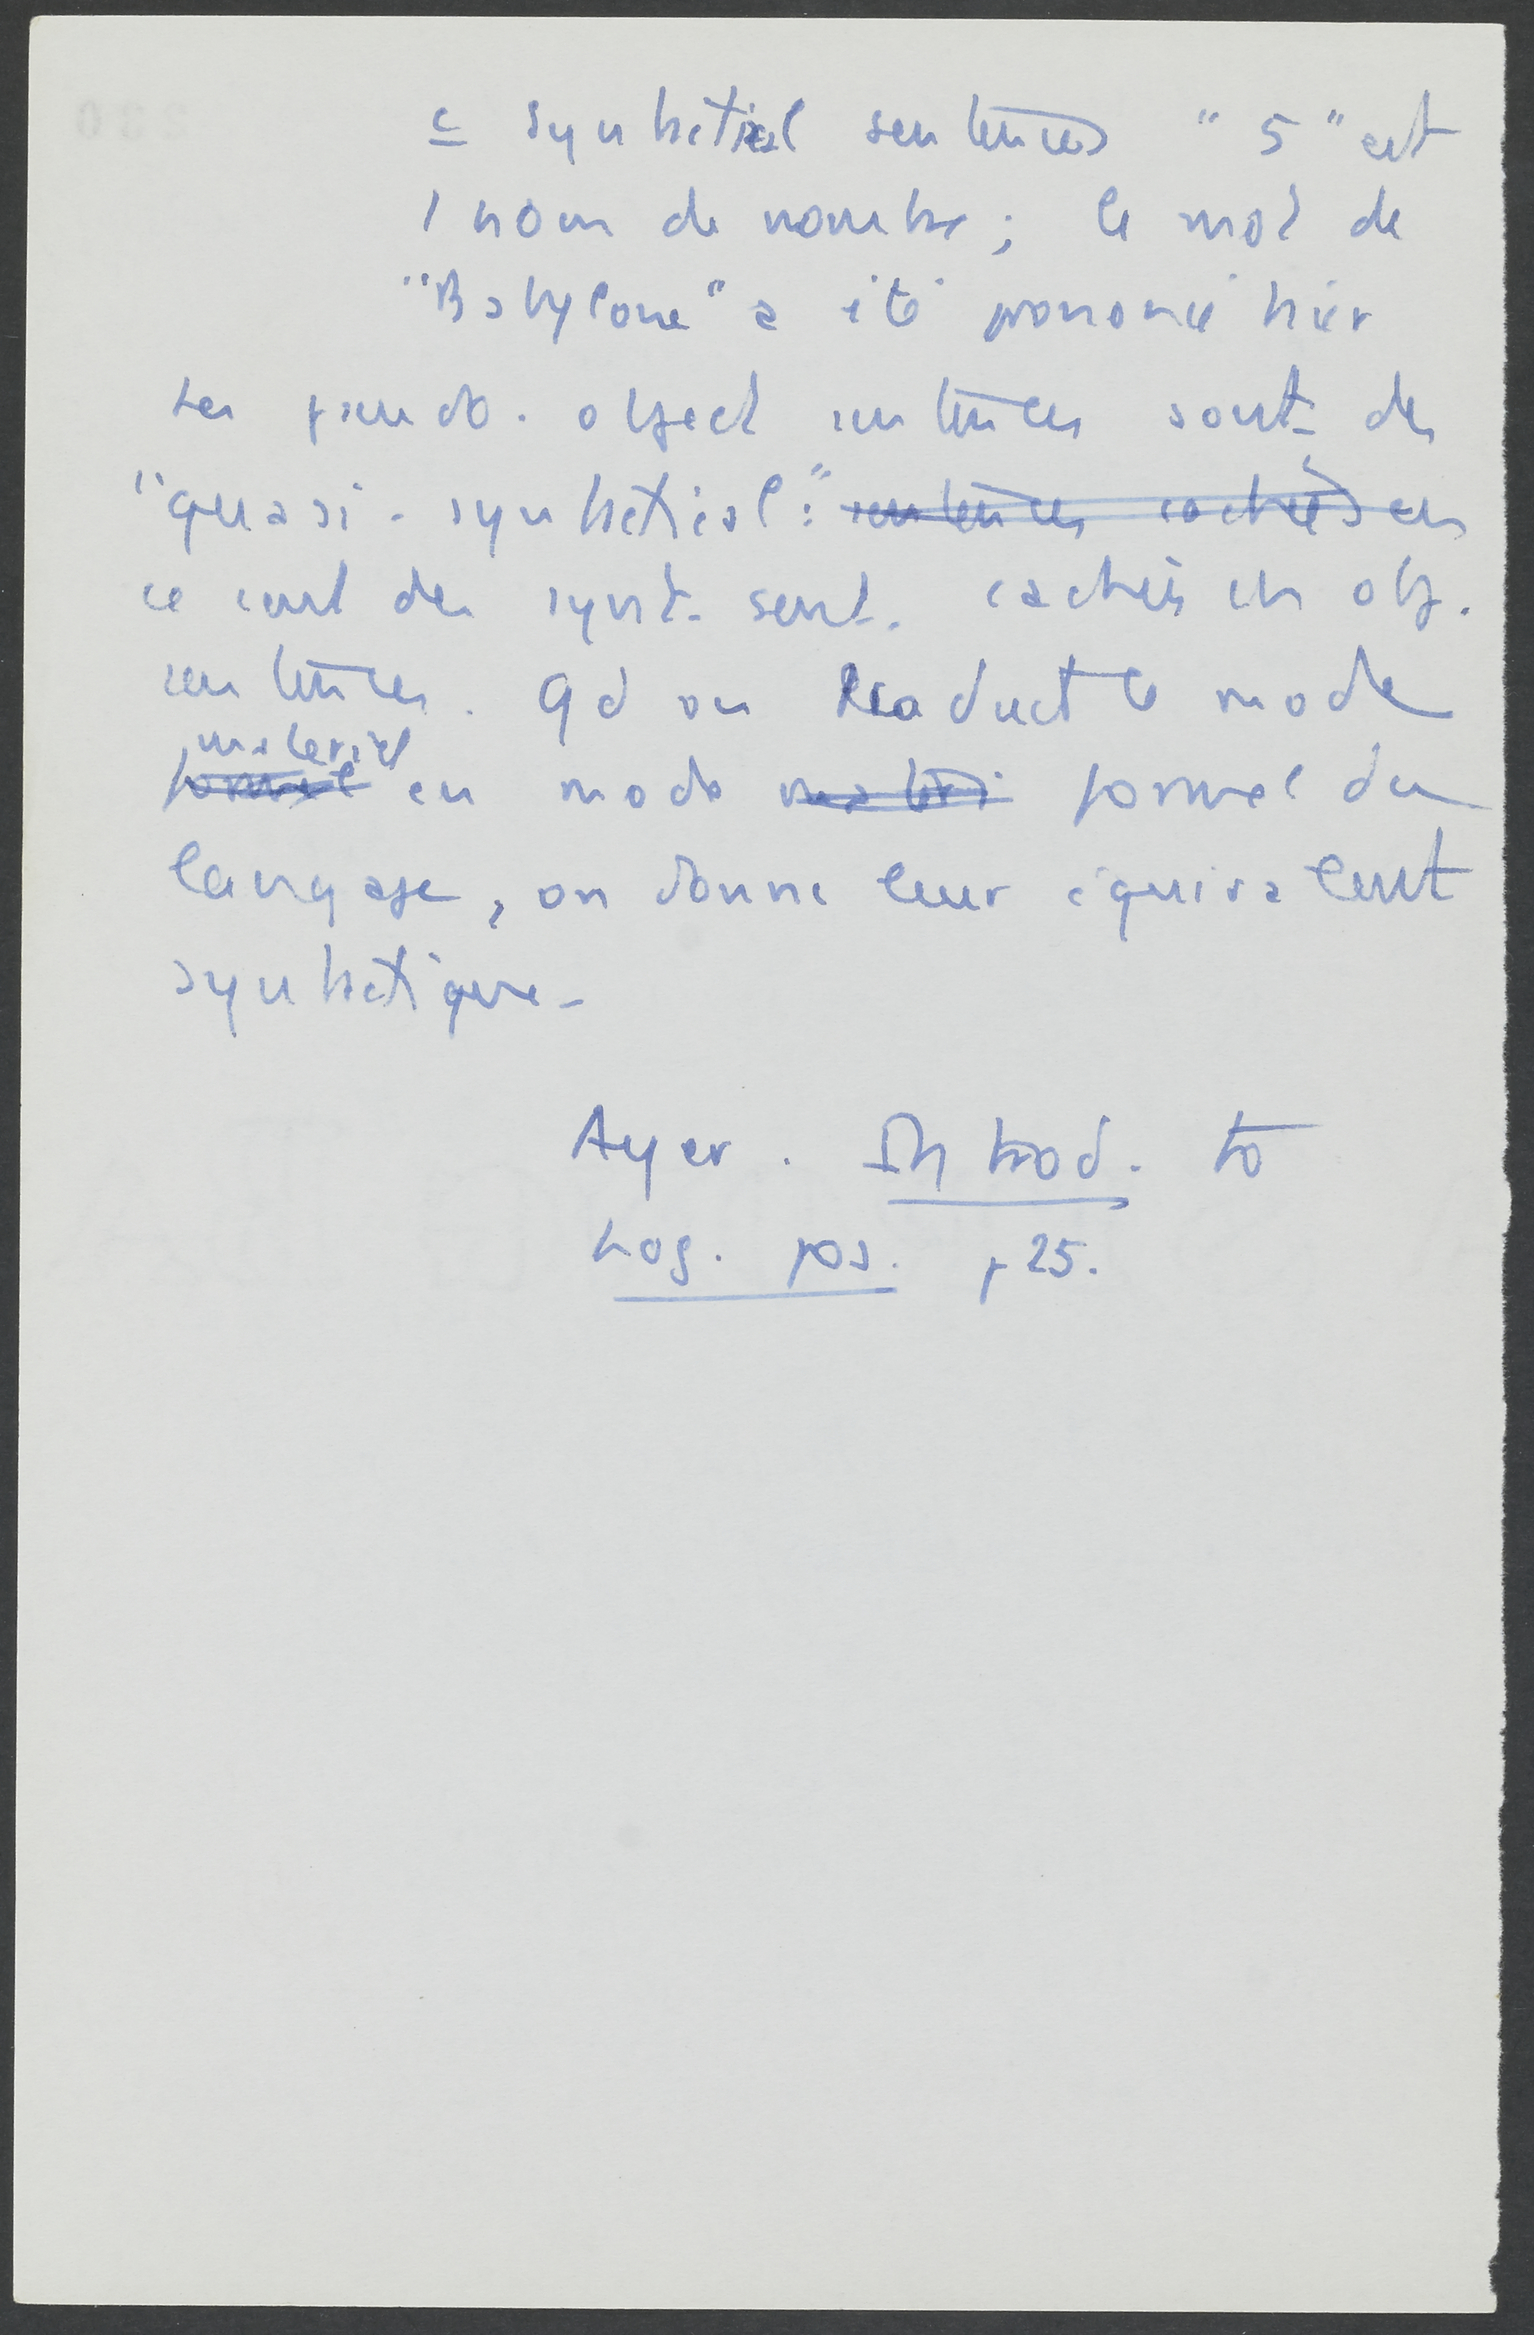 c synthetical sentences "5" est
1 nom de nombre ; le mot de
"Babylone" a été prononcé hier
Les pseudo. object sentences sont des
"quasi-synthetical :" sentences cachées en
ce sont des synt. sent. cachées en obj.
sentences. Qd on traduct le mode
formel matériel en mode matéri formel du
langage, on donne leur équivalent
synthetique-
Ayer. Introd. to
Log. pos. p 25.